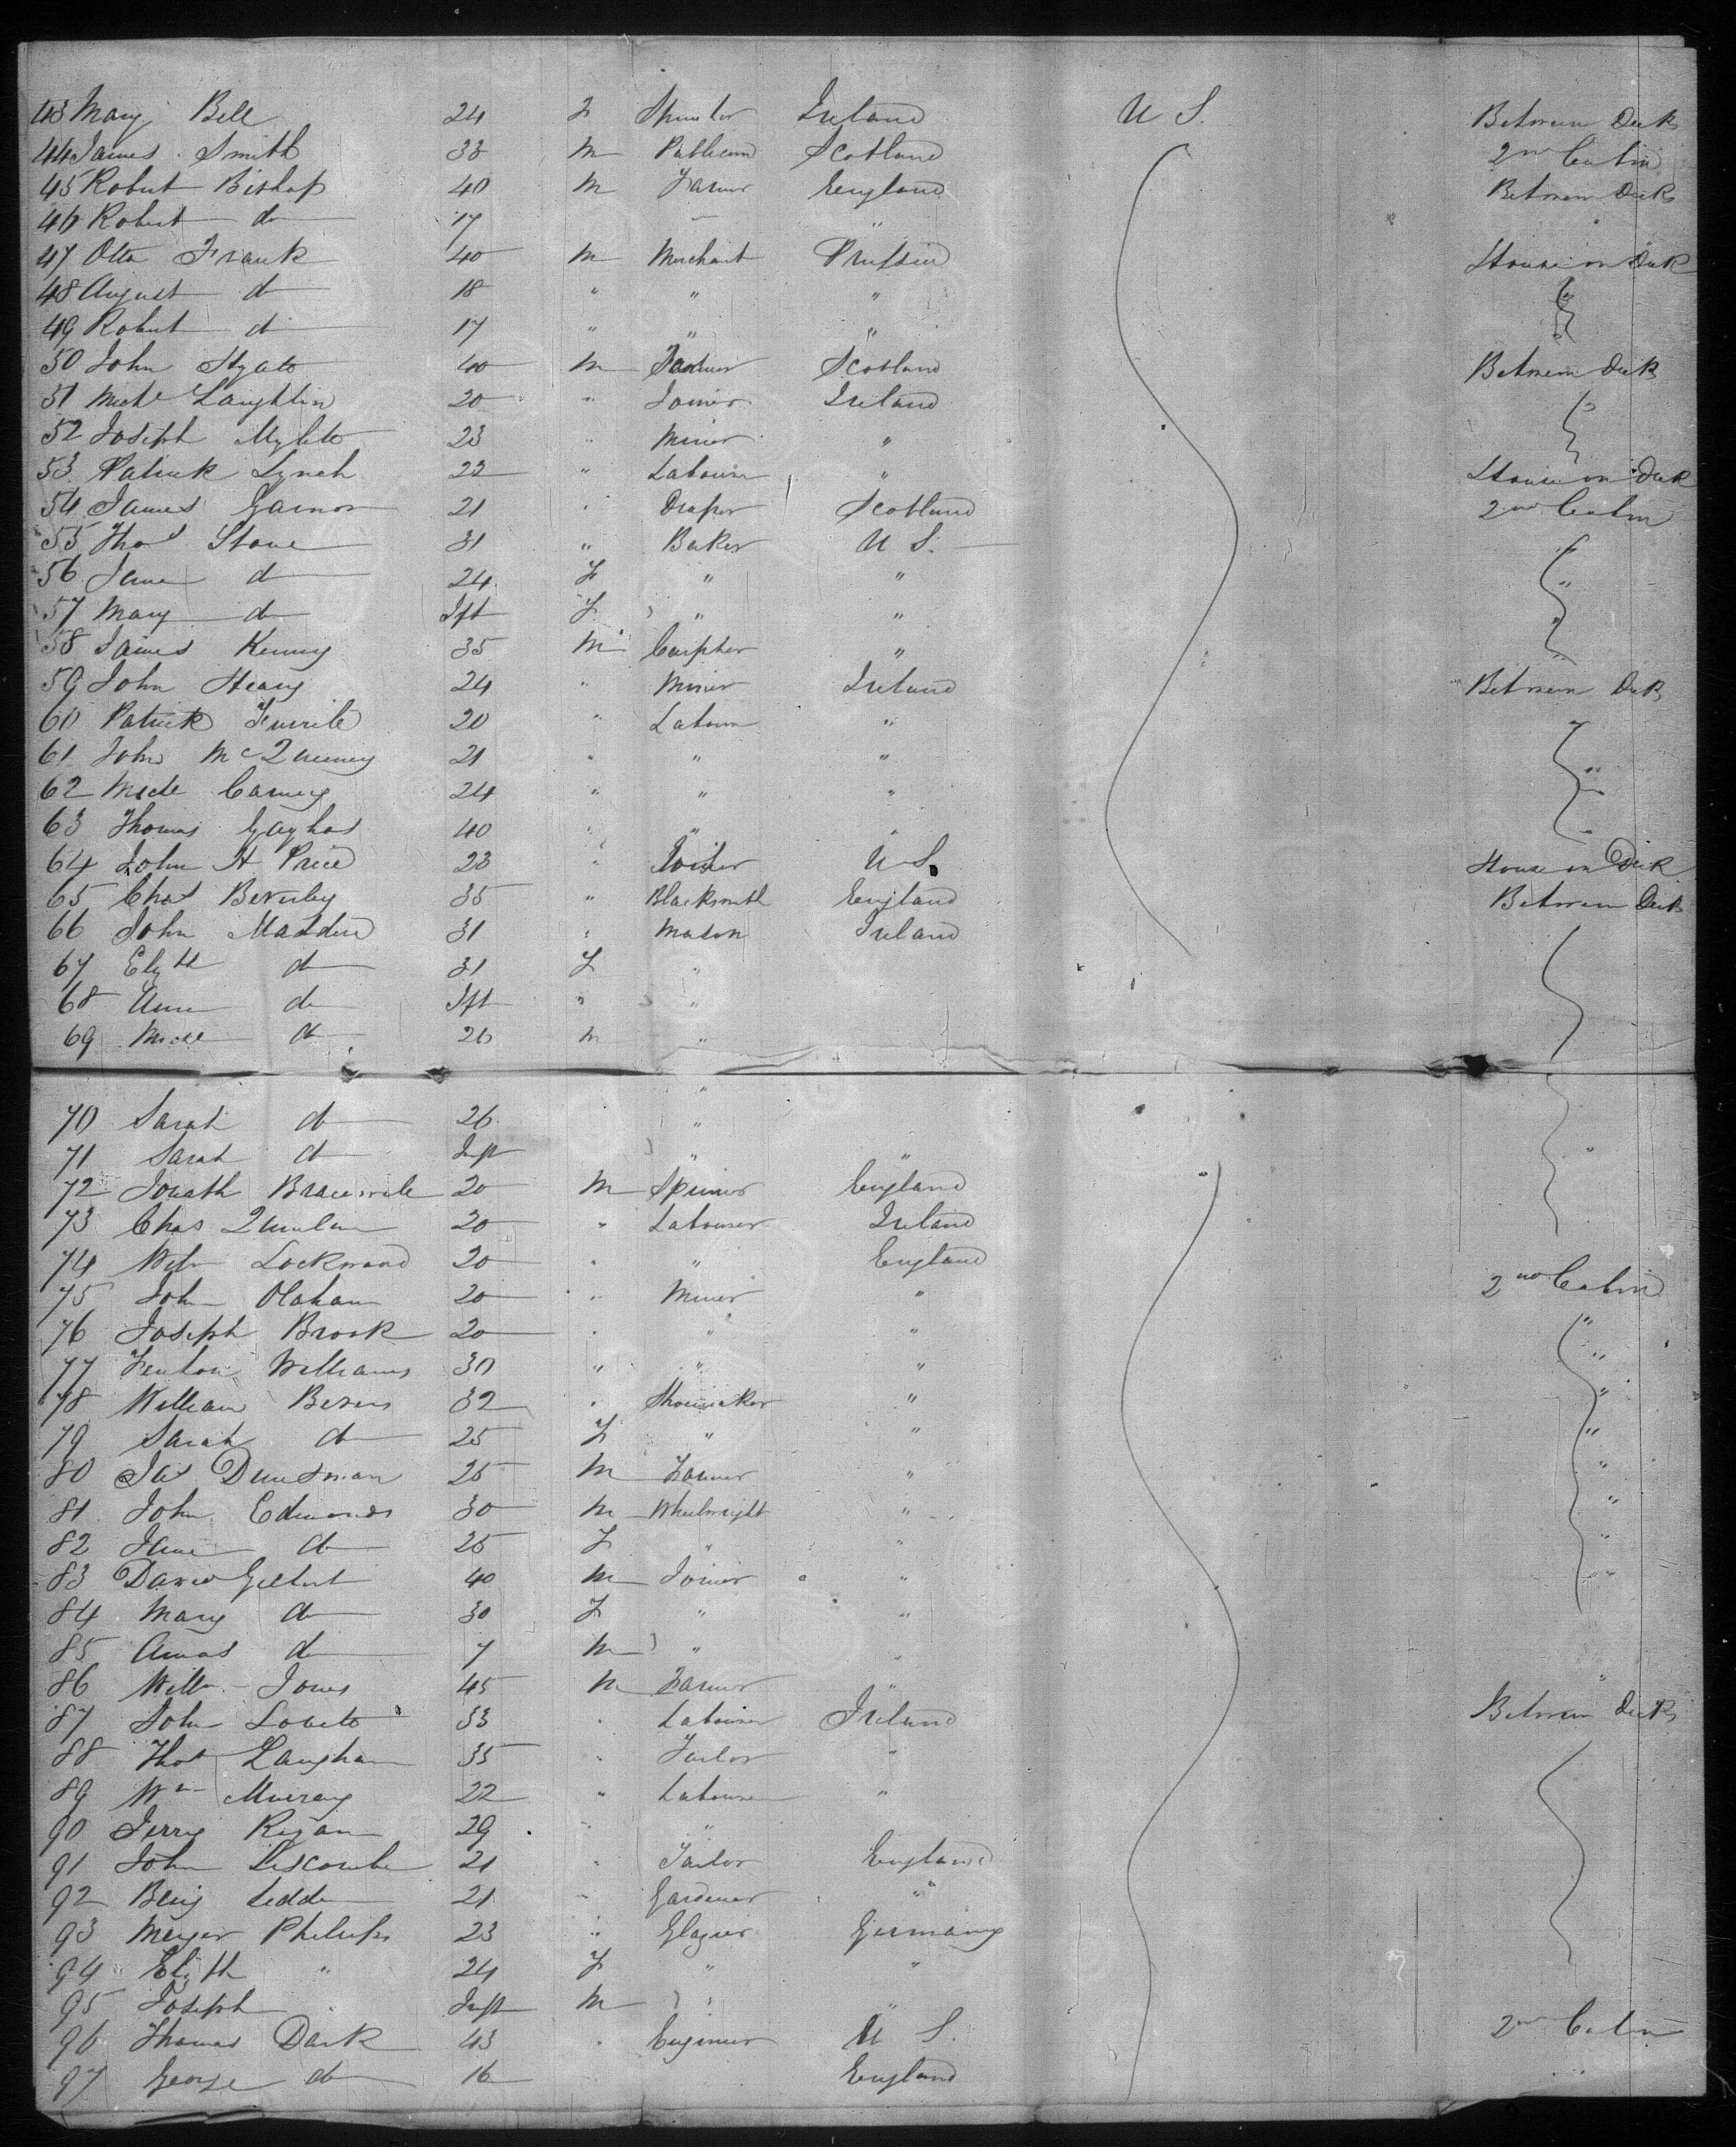 43 Mary Bell 24 F Spinster Ireland U S. Between Decks
44 James Smith 38 M Publican Scotland 2nd Cabin
45 Robert Bishop 40 M Farmer England Between Decks
46 Robert do 17 "
47 Otto Frank 40 M Merchant Prussia House on Deck
48 August do 18 " " "
49 Robert do 17 " " "
50 John 40 M Farmer Scotland Between Decks
51 Michl Laughlin 20 " Joiner Ireland
52 Joseph 23 " Miner "
53 Patrick Lynch 22 " Labourer " House on Deck
54 James 21 " Draper Scotland 2nd Cabin
55 Thos Stone 31 " Baker U S.
56 Jane do 24 F " "
57 Mary do Ift F " "
58 James Kenny 35 M Carpter "
59 John Heany 24 " Miner Ireland Between Decks
60 Patrick 20 " Labour "
61 John 21 " " "
62 Carney 24 " " "
63 Thomas 40 " " "
64 John H Price 23 " U S. House on Deck
65 Chas Beverley 35 " Blacksmith England Between Decks
66 John Madden 31 " Mason Ireland
67 Elizth do 31 F "
68 Ann do Ift " "
69 do 26 M "
70 Sarah do 26 "
71 Sarah do Inft " "
72 20 M Spinner England
73 Chas Quinlan 20 " Labourer Ireland
74 Wm Lockwood 20 " " England
75 John 20 " Miner " 2nd Cabin
76 Joseph Brook 20 " " " "
77 Fenton Williams 30 " " " "
78 William Bevers 32 " Shoemaker " "
79 Sarah do 25 F " " "
80 Jas 25 M Farmer " "
81 John Edmonds 30 M Wheelwright " "
82 Jane do 25 F " " "
83 David Gilbert 40 M Joiner " "
84 Mary do 30 F " "
85 Amos do 7 M " "
86 Willm Jones 45 M Farmer " "
87 John 33 " Labourer Ireland Between Decks
88 Thos Langhan 35 " Tailor "
89 Wm Murray 22 " Labourer "
90 Jerry Regan 29 " "
91 John Liscombe 21 " Tailor England
92 Benj 21 " Gardener "
93 Meyer Philips 23 " Glazier Germany
94 Elizth " 24 F " "
95 Joseph " Inft M "
96 Thomas Dark 43 " Engineer U S. 2nd Cabin
97 George do 16 England "